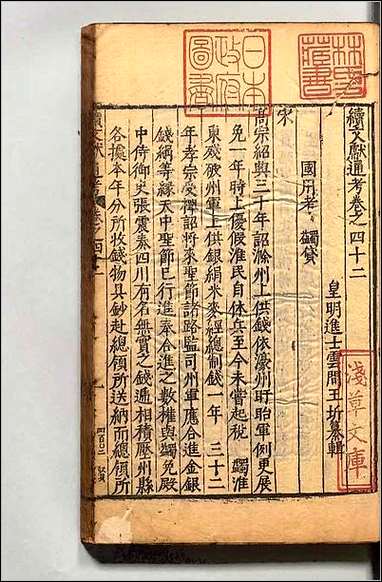 林氏藏書
日本政府圖書
續文獻通考卷之四十二
皇明進士雲間王圻纂輯
淺草文庫
國用考 蠲貸
宋
高宗紹興三十年詔滁州上供錢依濠州盱眙軍例更展
免一年時上優假淮民自休兵至今未嘗起稅 蠲淮
東殘破州軍上供銀絹米麥經總制錢一年 三十二
年孝宗受禪詔將來聖節諸路監司州軍應合進金銀
錢絹等緣天中聖節已行進奉合進之數權與蠲免殿
中侍御史張震奏四川有名無實之錢遞相積壓州縣
各據本年分所收錢物具鈔赴總領所送納而總領所